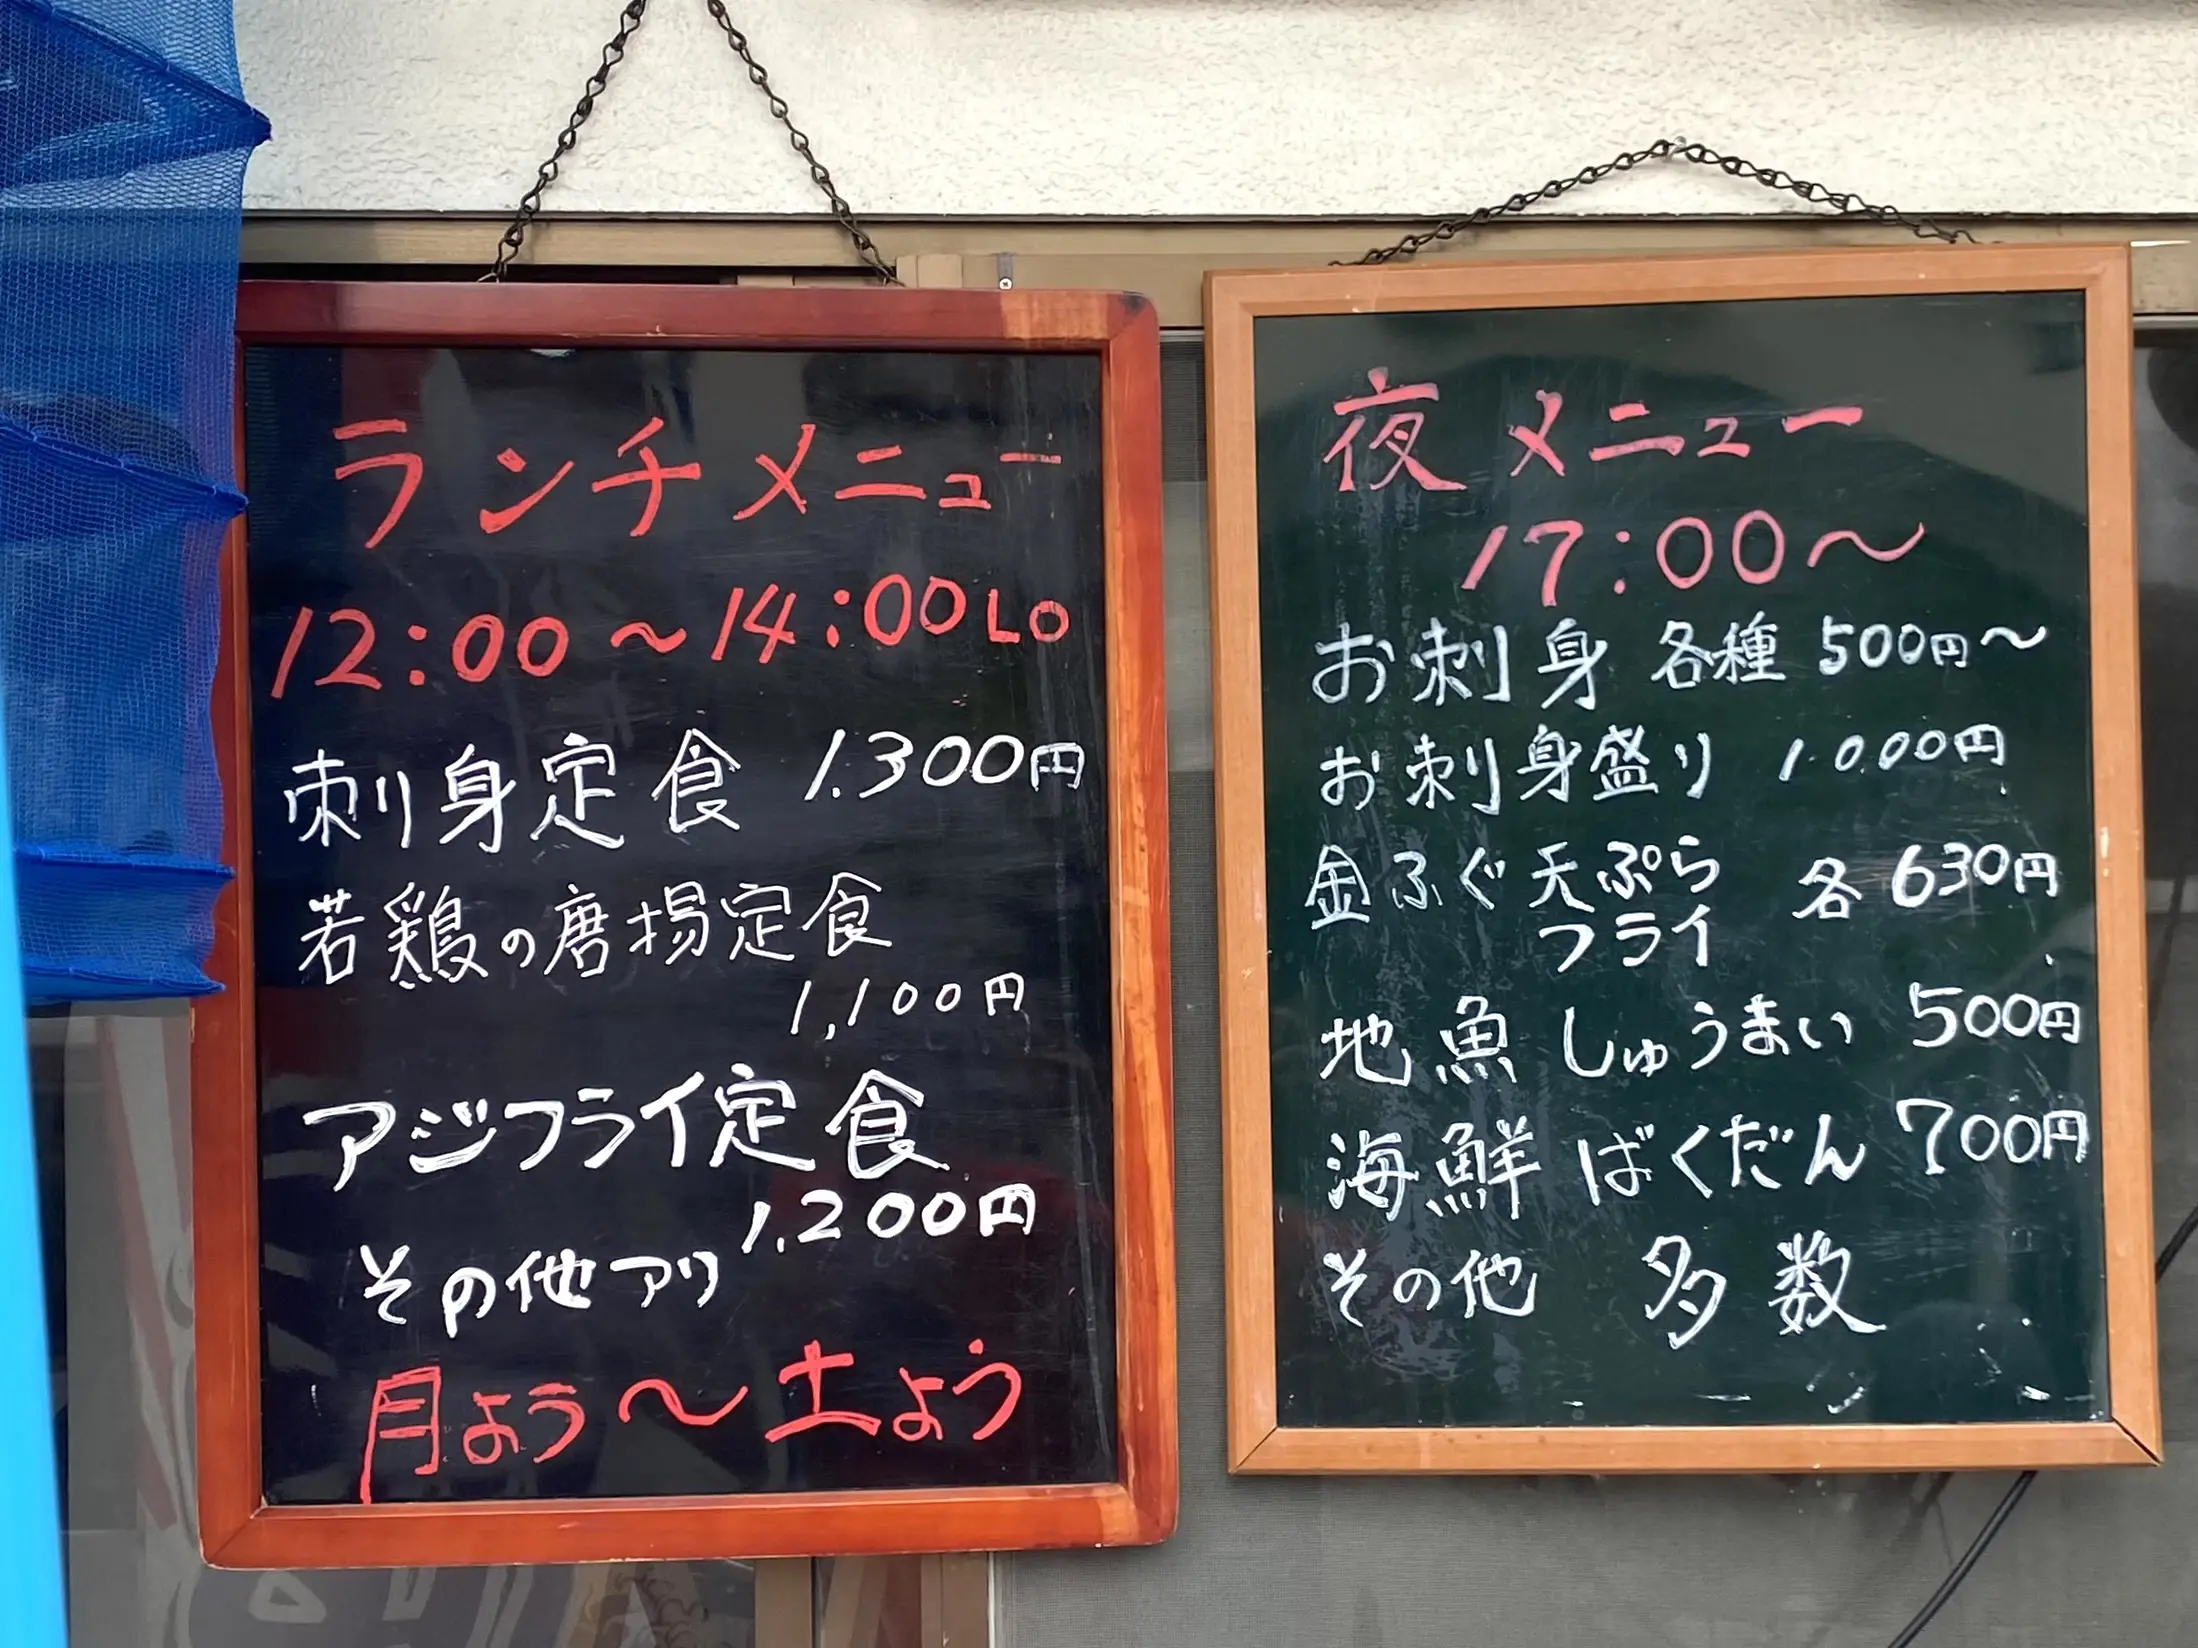 ランチメニュー
12:00〜14:00LO
刺身定食 1.300円
若鶏の唐揚定食
1,100円
アジフライ定食
1,200円
その他アリ
月よう〜土よう
夜メニュー
17:00〜
お刺身 各種 500円〜
お刺身盛り 1.000円
金ふぐ天ぷら 各630円
フライ
地魚しゅうまい 500円
海鮮ばくだん 700円
その他 多数